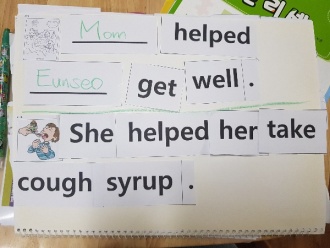 Mom helped
Eunseo get well.
She helped her take
cough syrup.